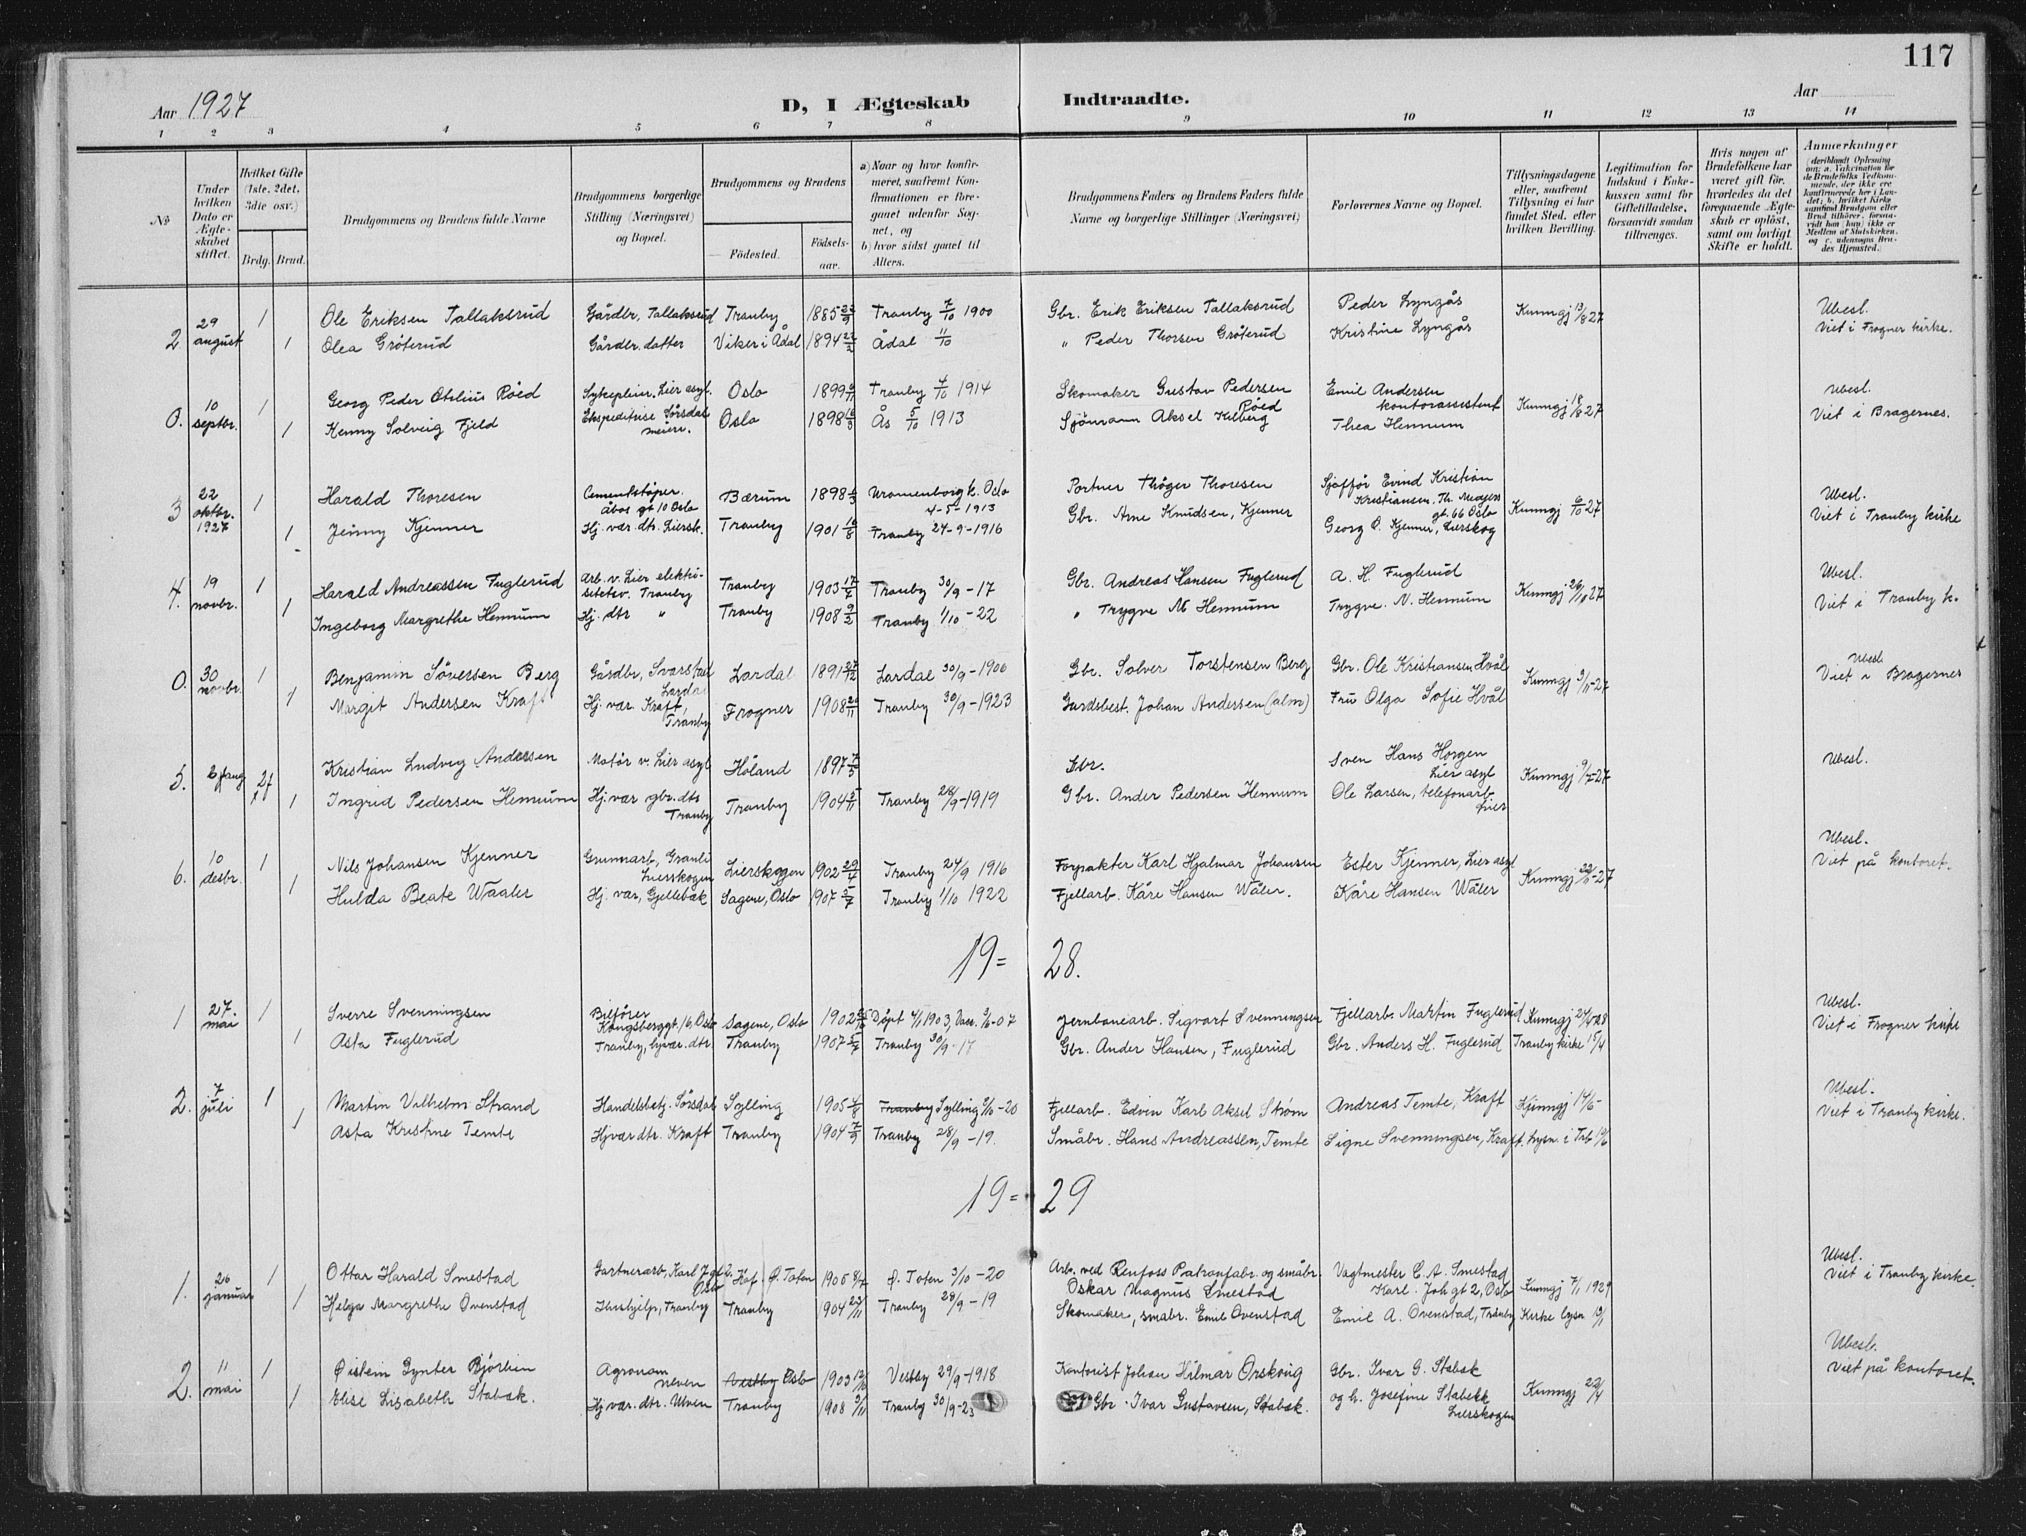 117
Aar 1927
D, I Ægteskab Indtraadte.
Aar
1 2 3 4 5 6 7 8 9 10 11 12 13 14
№
Under hvilken Dato er Ægteskabet stiftet.
Hvilket Gifte (1ste, 2det, 3die osv.)
Brdg. Brud.
Brudgommens og Brudens fulde Navne
Brudgommens borgerlige Stilling (Næringsvei) og Bopæl.
Brudgommens og Brudens
Födested.
Födselsaar.
a) Naar og hvor konfirmeret, saafremt Konfirmationen er foregaaet udenfor Sognet, og
b) hvor sidst gaaet til Alters.
Brudgommens Faders og Brudens Faders fulde Navne og borgerlige Stillinger (Næringsvei)
Forlovernes Navne og Bopæl.
Tillysningsdagene eller, saafremt Tillysning ei har fundet Sted, efter hvilken Bevilling.
Legitimation for Indskud i Enkekassen samt for Giftetilladelse, forsaavidt saadan tiltrænges.
Hvis nogen af Brudefolkene har været gift för, hvorledes da det foregaaende Ægteskab er oplöst, samt om lovligt Skifte er holdt.
Anmærkninger
2 29 august 1 Ole Eriksen Tallaksrud Gårdbr, Tallaksrud Tranby 1885 Tranby 7/10 1900 Gbr. Erik Eriksen Tallaksrud Peder Lyngås Kunngj 13/8 27 Ubesl.
1 Olea Gröterud Gårdbr. datter Viker i Ådal 1894 Ådal 11/10 " Peder Thorsen Gröterud Kristine Lyngås Viet i Frogner kirke.
0. 10 septbr. 1 Georg Peder Otilius Röed Sykepleier, Lier asyl. Oslo 1899 Tranby 4/10 1914 Skomaker Gustav Pedersen Röed Emil Andersen kontorassistent Kunngj 18/8 27 Ubesl.
1 Kenny Solveig Fjeld Ekspeditrise Sørsdal meieri. Oslo 1898 Ås 5/10 1913 Sjömann Aksel Kilberg Thea Hennum Viet i Bragernes.
3 22 oktbr. 1927 1 Harald Thoresen Cementstøper. Åbos gt 10 Oslo Bærum 1898 Uranienborg k. Oslo 4-5-1913 Portner Thöger Thoresen Sjåffør Eivind Kristian Kristiansen, Th. Meyers gt. 66 Oslo Kunngj 6/10 27 Ubesl.
1 Jenny Kjenner Hj. vær. dtr. Liersk. Tranby 1901 16/8 Tranby 24-9-1916 Gbr. Arne Knudsen, Kjenner Georg O. Kjenner, Lierskog Viet i Tranby kirke
4. 19 novbr. 1 Harald Andreassen Fuglerud Arb. v. Lier elektrisitetsv. Tranby Tranby 1903 17/7 Tranby 30/9-17 Gbr. Andreas Hansen Fuglerud A. H. Fuglerud Kunngj 26/10 27 Ubesl.
1 Ingeborg Margrethe Hennum Hj. dtr " Tranby 1908 9/2 Tranby 1/10-22 " Trygve M Hennum Trygve. N. Hennum Viet i Tranby k.
0. 30 novbr. 1 Benjamin Söversen Berg Gårdbr, Svarstad Lardal Lardal 1891 27/12 Lardal 30/9-1906 Gbr. Solver Torstensen Berg Gbr. Ole Kristiansen Hvål Kunngj 3/11-27 Ubesl
1 Margit Andersen Kraft Hj. vær. Kraft, Tranby Frogner 1908 Tranby 30/9-1923 Gårdsbest. Johan Andersen (alm) Fru Olga Sofie Hvål Viet i Bragernes
5. 27 Kristian Ludvig Andersen Matør v. Lier asyl Höland 1897 7/5 Gbr. Sven Hans Horgen Lier asyl Kunngj 9/7-27 Ubesl.
1 Ingrid Pedersen Hennum Hj. vær gbr. dtr Tranby Tranby 1904 Tranby 28/9-1919 Gbr. Ander Pedersen Hennum Ole Larsen, telefonarb. Lier
6. 10 desbr. 1 Nils Johansen Kjenner Grunnarb, Granli Lierskogen Lierskogen 1902 29/4 Tranby 24/9 1916 Forpakter Karl Hjalmar Johansen Ester Kjenner, Lier asyl Kunngj -27 Ubesl.
1 Hulda Beate Waaler Hj. vær, Gjellebæk Sagene, Oslo 1907 5/7 Tranby 1/10 1922 Fjellarb. Kåre Hansen Wåler. Kåre Hansen Wåler Viet på kontoret.
19=28.
1 27. mai 1 Sverre Svenningsen Bilförer Kongsberggt. 16, Oslo Sagene, Oslo 1902 Döpt 4/1 1903, Vacc. -07 Jernbanearb. Sigvart Svenningsen Fjellarb. Martin Fuglerud Kunngj 24/4-28 Ubesl.
1 Asta Fuglerud Tranby, hj.vær. dtr Tranby 1907 5/7 Tranby 30/9-17 Gbr. Ander Hansen, Fuglerud Gbr. Anders H. Fuglerud Tranby kirke 15/4 Viet i Frogner kirke
2. 7 juli 1 Martin Vilhelm Strand Handelsbetj. Sørsdal Sylling 1905 Tranby Sylling -20 Fjellarb. Edvin Karl Aksel Ström Andreas Temte, Kraft Kunngj 14/6- Ubesl.
1 Asta Kristine Temte Hjvær dtr. Kraft Tranby 1904 7/9 Tranby 28/9-19. Småbr. Hans Andreassen, Temte Signe Svenningsen, Kraft. Lysn. i Trb Viet i Tranby kirke.
19=29
1. 26 januar 1 Ottar Harald Smestad Gartnerarb, Karl J gt 2. Oslo Kaf. Ö. Toten 1905 Ö. Toten 3/10-20 Arb. ved Renfoss Patronfabr. og småbr. Oskar Magnus Smestad Vagtmester C. A. Smestad Karl. Joh gt 2, Oslo Kunngj 7/1 1929 Ubesl.
1 Helga Margrethe Ovenstad Hushjelp, Tranby Tranby 1904 23/11 Tranby 28/9-19 Skomaker, småbr. Emil Ovenstad Emil A. Ovenstad, Tranby Kirke lysn Viet i Tranby kirke.
2. 11 mai 1 Öistein Gynter Björbin Agronom Vestby Oslo 1903 Vestby 29/9-1918 Kontorist Johan Hilmar Orskoug Gbr. Ivar G. Stabæk Kunngj 22/4 Ubesl.
1 Elise Lisabeth Stabæk. Hj vær. dtr. Ulven Tranby 1908 Tranby 30/9-23 Gbr. Ivar Gustavsen, Stabæk. og h. Josefine Stabekk Lierskogen Viet på kontoret.